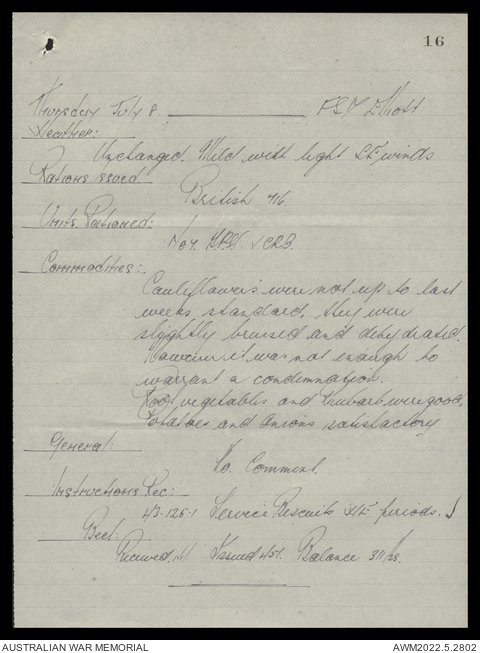 16
Thursday July 8. F.S.D. Elliott
Weather:
Unchanged. Mild with light S.E. winds
Rations issued
British 716.
Units Rationed:
No 4.
Commodities:
Cauliflowers were not up to last
weeks standard, they were
slightly bruised and dehydrated.
However it was not enough to
warrant a condemnation.
Root vegetables and Rhubarb were good,
Potatoes and Onions satisfactory
General:
No Comment.
Instructions Rec:
43-125-1 Service Biscuits periods.
Beef:
Received Issued 451. Balance
AUSTRALIAN WAR MEMORIAL
AWM2022.5.2802